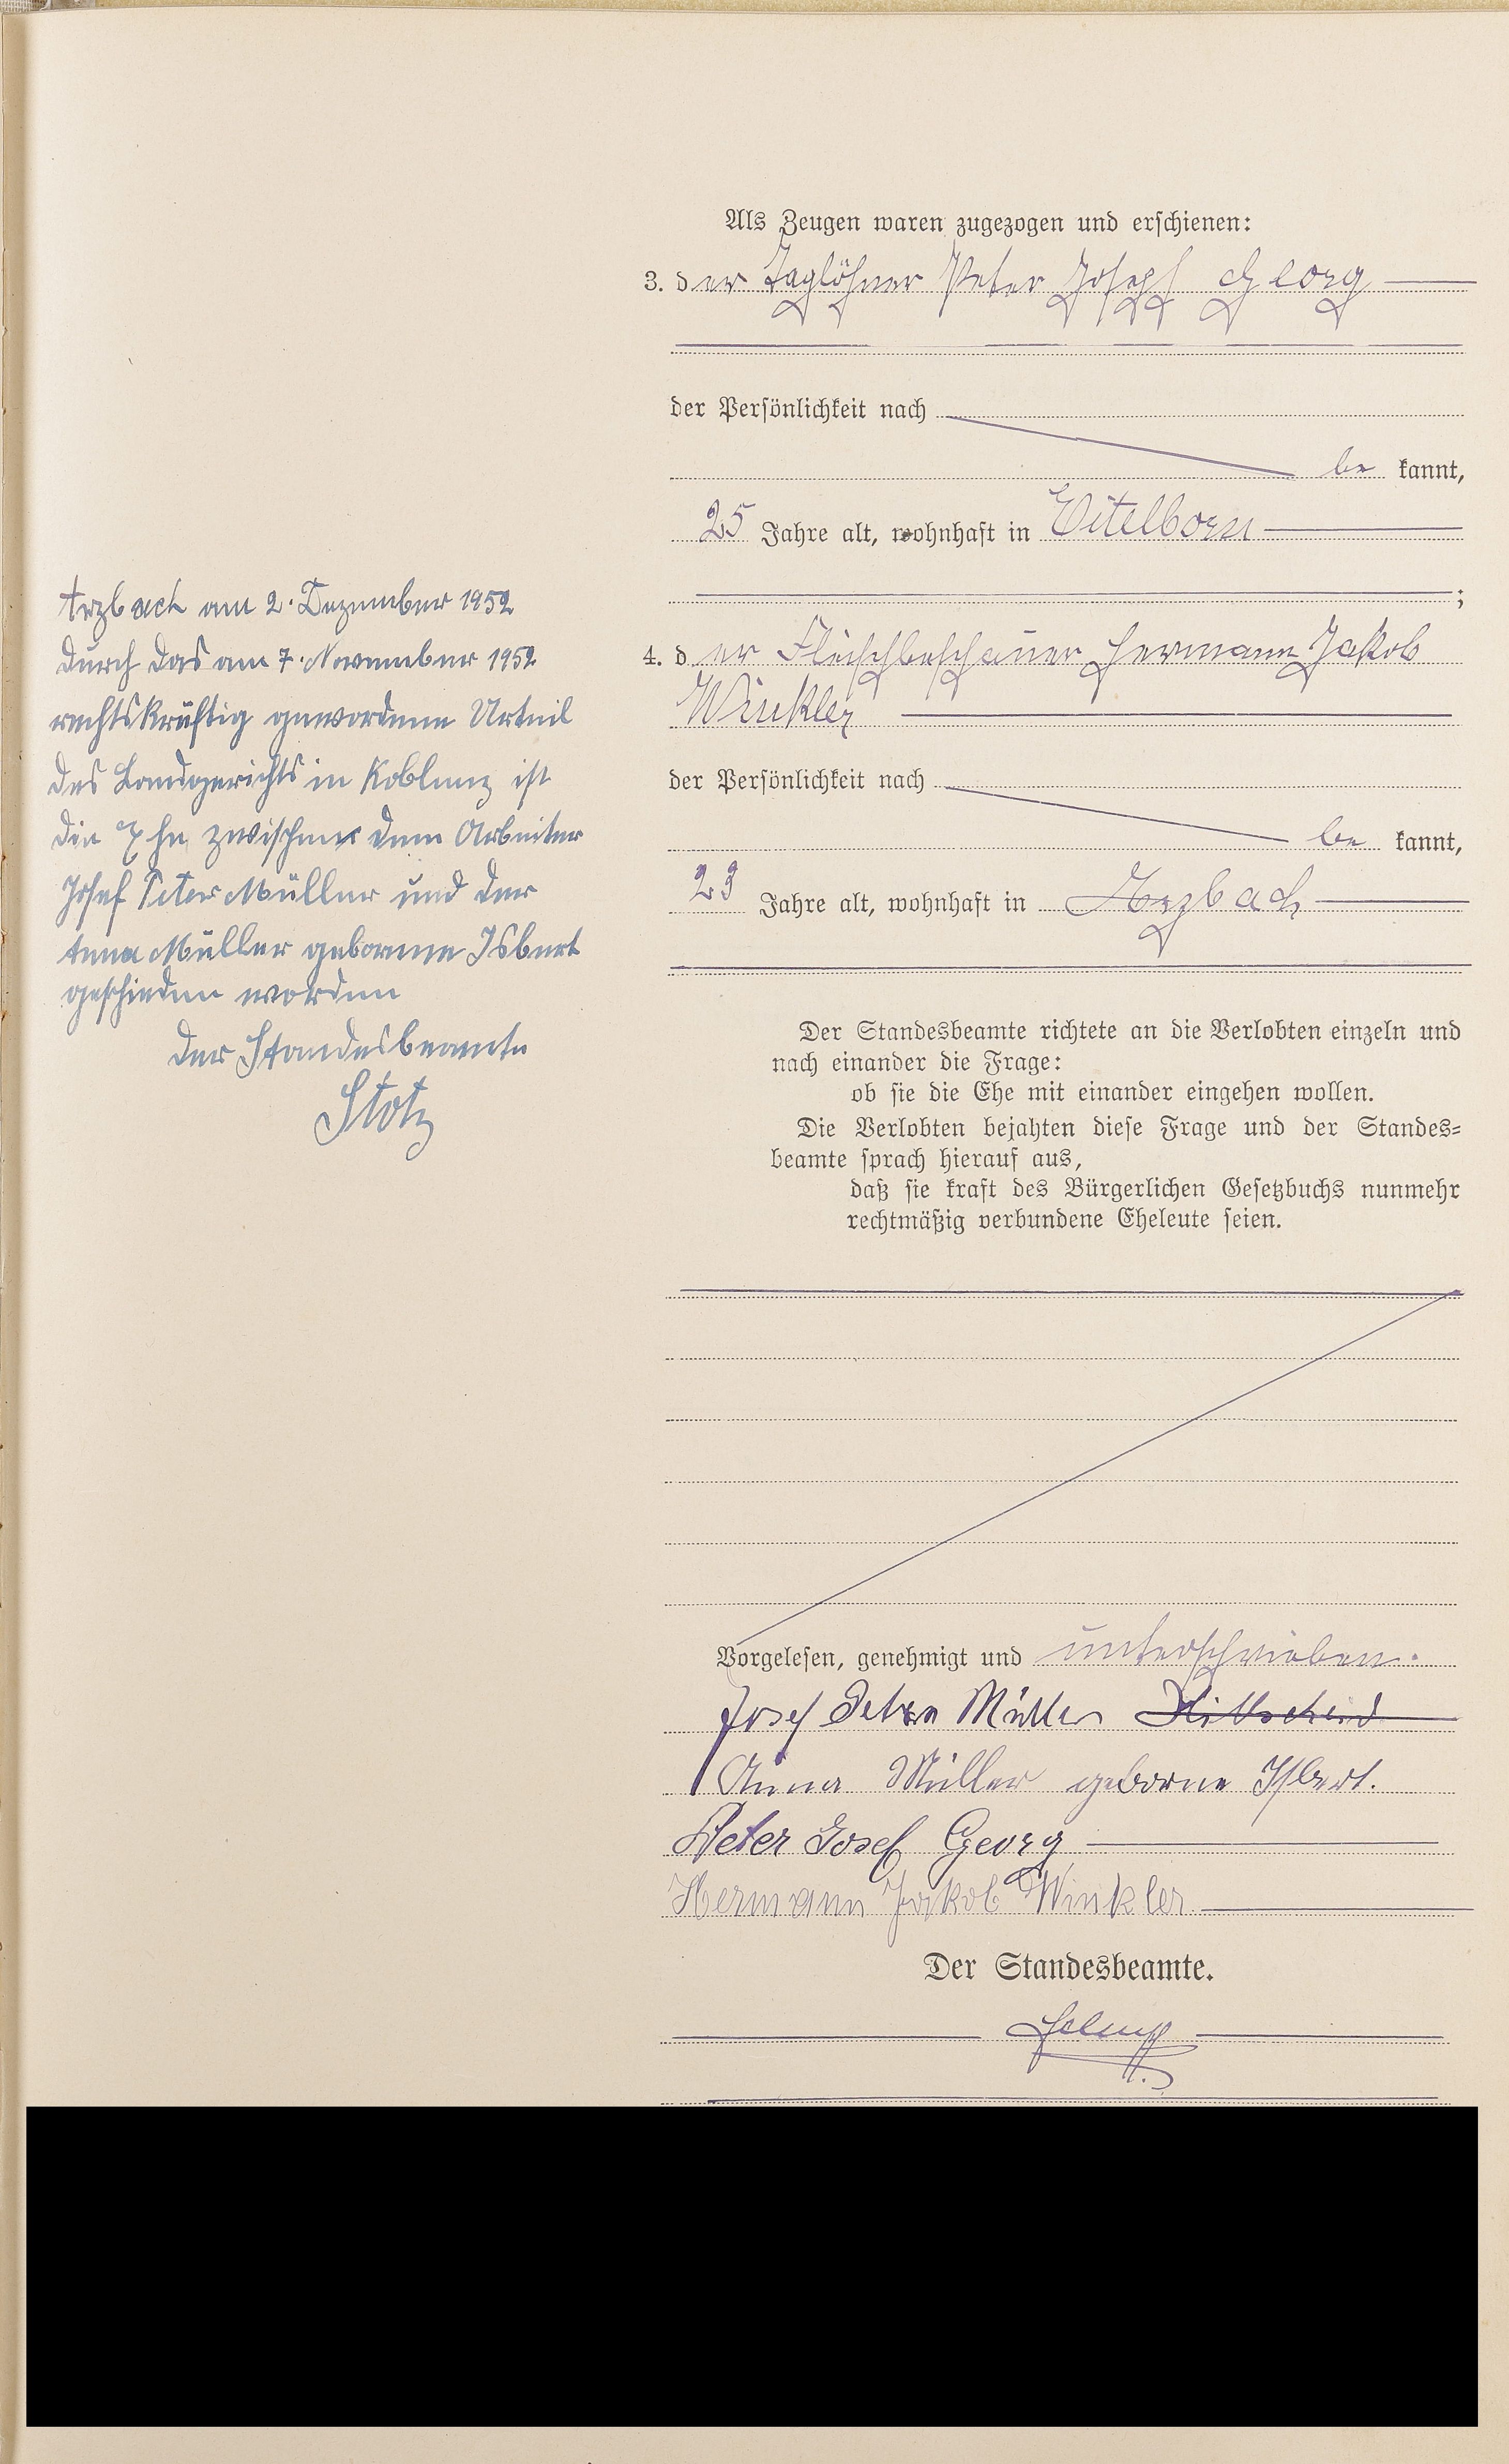 Als Zeugen waren zugezogen und erschienen:
3. der Taglöhner Peter Joseph Georg
der Persönlichkeit nach
be kannt,
25 Jahre alt, wohnhaft in Eitelborn
;
4. der Fleischbeschauer Hermann Jakob
Winkler
der Persönlichkeit nach
be kannt,
23 Jahre alt, wohnhaft in Arzbach
Arzbach am 2. Dezember 1952
Durch das am 7. November 1952
rechtskräftig gewordene Urteil
des Landgerichts in Koblenz ist
die Ehe zwischen dem Arbeiter
Josef Peter Müller und der
Anna Müller geborene Isbert
geschieden worden
Der Standesbeamte
Stotz
Der Standesbeamte richtete an die Verlobten einzeln und
nach einander die Frage:
ob sie die Ehe mit einander eingehen wollen.
Die Verlobten bejahten diese Frage und der Standes-
beamte sprach hierauf aus,
daß sie kraft des Bürgerlichen Gesetzbuchs nunmehr
rechtmäßig verbundene Eheleute seien.
Vorgelesen, genehmigt und unterschrieben.
Josef Peter Müller Hillscheid
Anna Müller geborne Isbert.
Peter Josef Georg
Hermann Jakob Winkler
Der Standesbeamte.